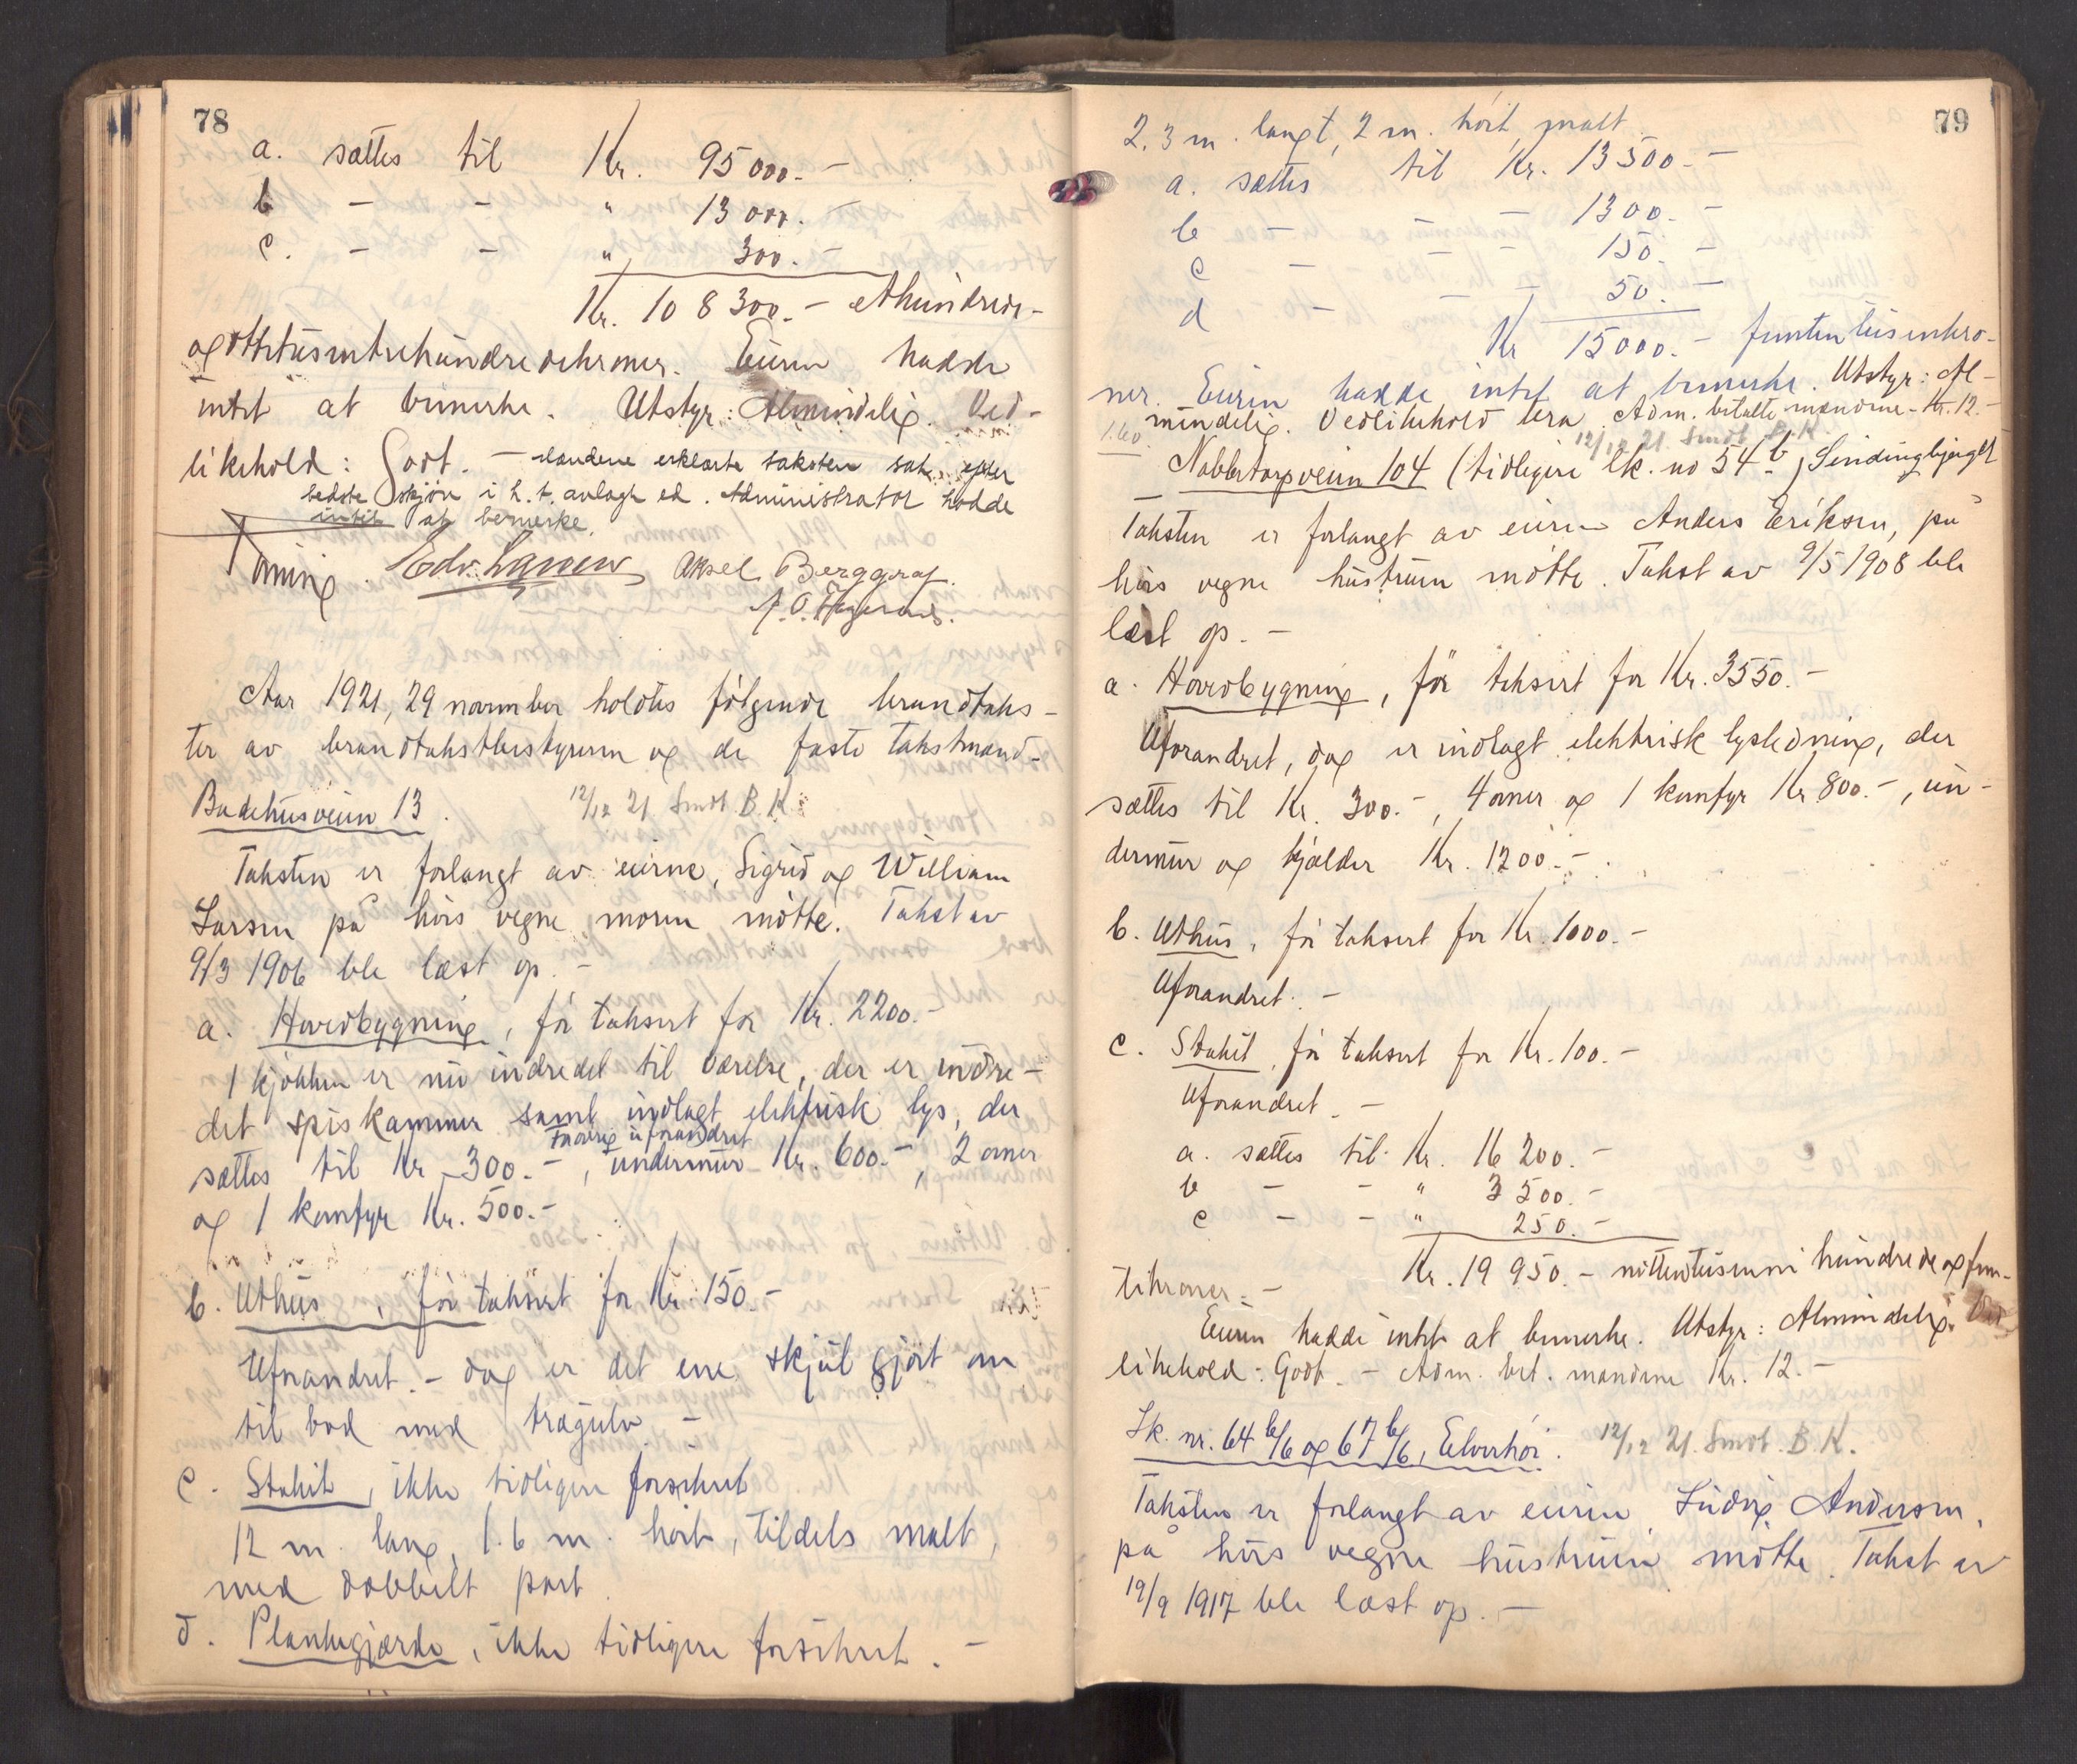 78
a. sættes til Kr. 95 000.-
b - - " 13 000.-
c. - - " 300.-
Kr. 108 300.- ethundrede-
ogottetusentrehundredekroner. Eieren hadde
intet at bemerke. Utstyr: Almindelig. Ved-
likehold: Godt. - Mændene erklærte taksten sat efter
bedste skjøn i h. t. avlagt ed. Administrator hadde
intet at bemerke.
Tøning. Edv. Larsen Aksel Berggraf.
Aar 1921, 29 november holdtes følgende brandtaks-
ter av brandtakstbestyreren og de faste takstmænd.
Badehusveien 13. 12/12 21 Sendt B.K.
Taksten er forlangt av eierne, Sigrid og William
Larsen på hvis vegne moren møtte. Takst av
9/3 1906 ble læst op. -
a. Hovedbygning, før taksert for Kr. 2200.-
1 kjøkken er nu indredet til værelse, der er indre-
det spiskammer samt indlagt elektrisk lys, der
sættes til Kr. 300.-, undermur Kr. 600.-, 2 ovner
Forøvrig uforandret
og 1 komfyr Kr. 500.-
b. Uthus, før taksert for Kr. 150.-
Uforandret.- dog er det ene skjul gjort om
til bod med trægulv. -
c. Stakit, ikke tidligere forsikret
12 m. lang, 1.6 m. høit, tildels malt,
med dobbelt port.
d. Plankegjærde, ikke tidligere forsikret. -
79
2,3 m. langt, 2 m. høit, malt.
a. sættes til Kr. 13 500.-
b - - 1300.-
c - - 150.-
d - - 50.-
Kr 15000.- femtentusenkro-
ner. Eieren hadde intet at bemerke. Utstyr: Al-
mindelig. Vedlikehold bra. Adm. betalte mændene Kr. 12.-
1.60. 12/12 21 Sendt B.K.
Nabbetorpveien 104 (tidligere lk. no 54 b, Sindingbjerget
Taksten er forlangt av eieren Anders Eriksen, på
hvis vegne hustruen møtte. Takst av 9/5 1908 ble
læst op. -
a. Hovedbygning, før taksert for Kr. 3550.-
Uforandret, dog er indlagt elektrisk lysledning, der
sættes til Kr. 300.-, 4 ovner og 1 komfyr Kr 800.-, un-
dermur og kjælder Kr. 1200.-.
b. Uthus, før taksert for Kr. 1000.-
Uforandret. -
c. Stakit, før taksert for Kr. 100.-
Uforandret. -
a. sættes til Kr. 16 200.-
b - - " 3 500.-
c - - " 250.-
Kr. 19 950.- nittentusennihundredeogfem-
tikroner. -
Eieren hadde intet at bemerke. Utstyr: Almindelig. Ved-
likehold: Godt. - Adm. bet. mændene Kr. 12.-
Lk. nr. 64 b/6 og 67 b/6, Elverhøi. 12/12 21. Sendt. B. K.
Taksten er forlangt av eieren, Ludvig Andersen,
på hvis vegne hustruen møtte. Takst av
19/9 1917 ble læst op. -